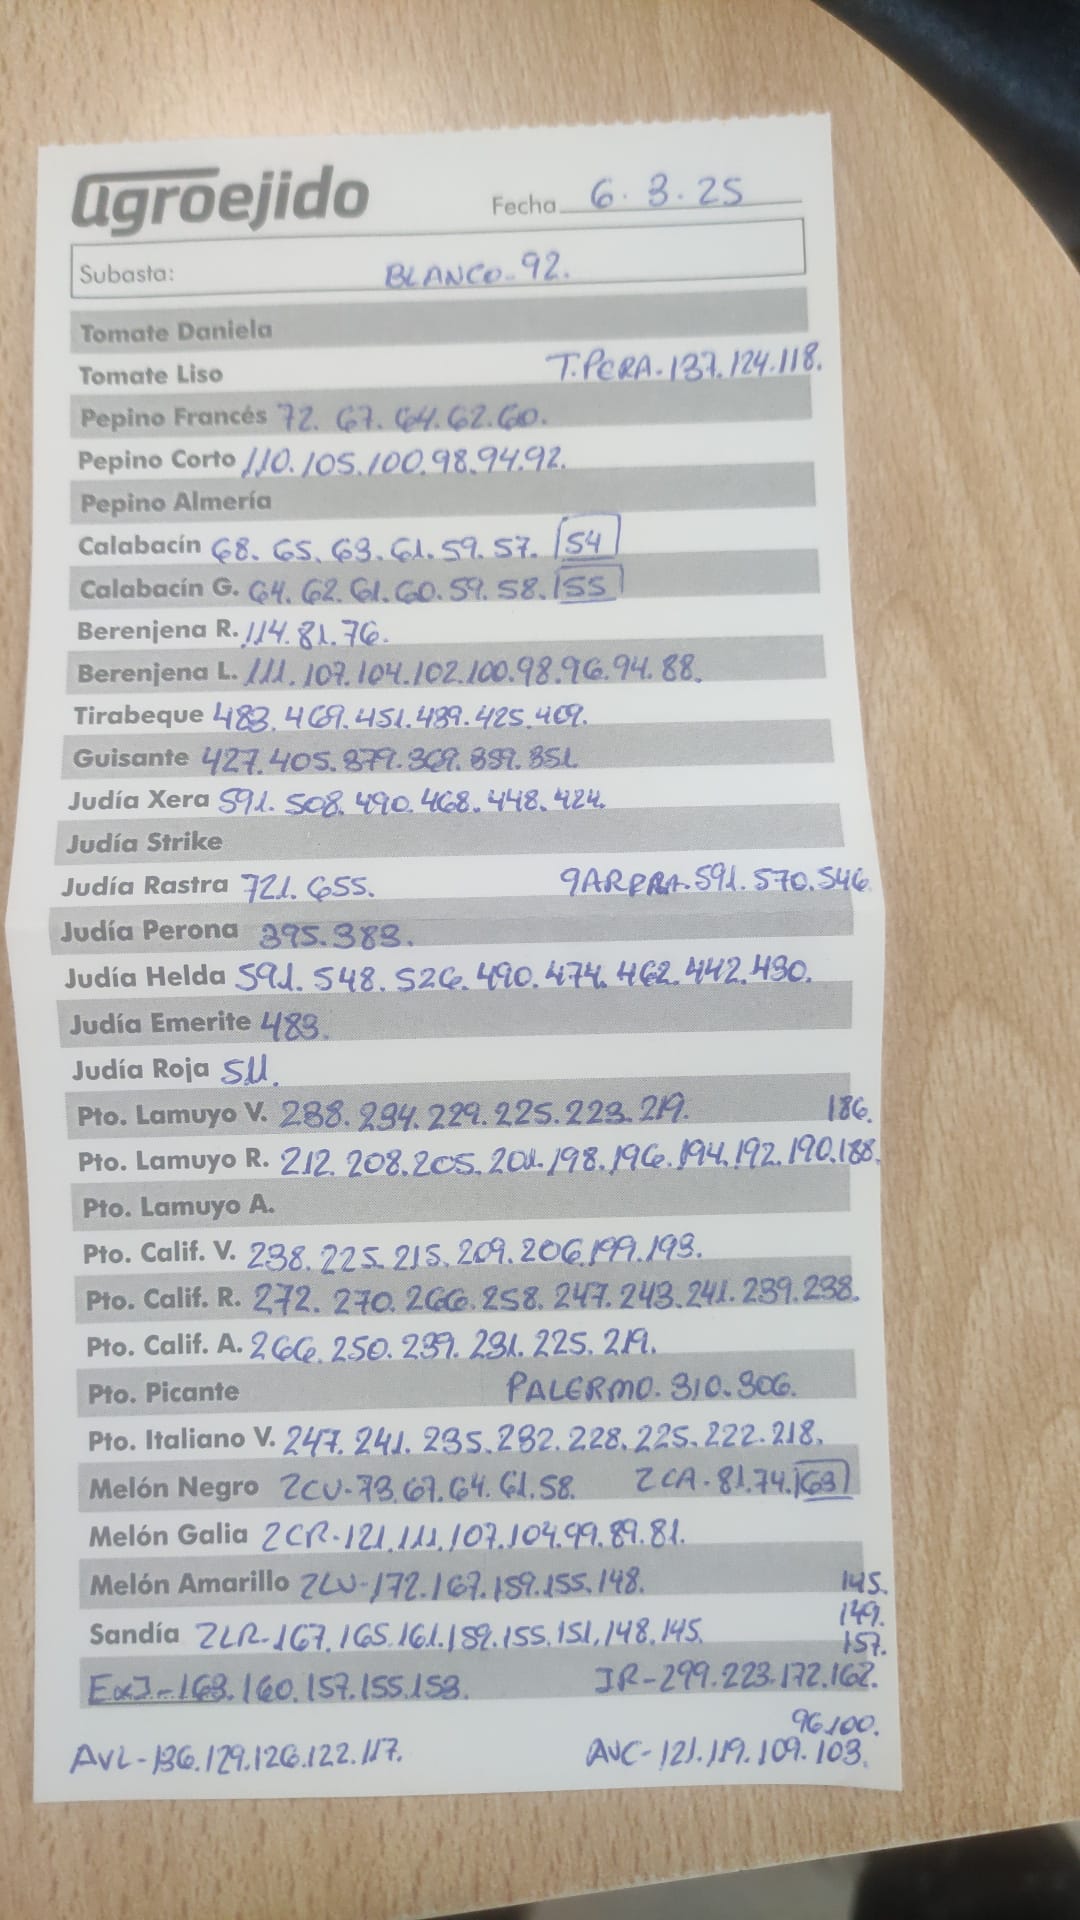 agroejido Fecha 6.3.25
Subasta: BLANCO-92.
Tomate Daniela
Tomate Liso T.PERA-137.124.118.
Pepino Francés 72.67.64.62.60.
Pepino Corto 110.105.100.98.94.92.
Pepino Almería
Calabacín 68.65.63.61.59.57.54
Calabacín G. 64.62.61.60.59.58.55
Berenjena R. 114.81.76.
Berenjena L. 111.107.104.102.100.98.96.94.88.
Tirabeque 483.469.451.439.425.409.
Guisante 427.405.379.369.359.351.
Judía Xera 591.508.490.468.448.424.
Judía Strike
Judía Rastra 721.655. GARRRA.591.570.546
Judía Perona 395.383.
Judía Helda 591.548.526.490.474.462.442.430.
Judía Emerite 483.
Judía Roja 511.
Pto. Lamuyo V. 238.234.229.225.223.219. 186.
Pto. Lamuyo R. 212.208.205.201.198.196.194.192.190.188.
Pto. Lamuyo A.
Pto. Calif. V. 238.225.215.209.206.199.193.
Pto. Calif. R. 272.270.266.258.247.243.241.239.238.
Pto. Calif. A. 266.250.239.231.225.219.
Pto. Picante PALERMO.310.306.
Pto. Italiano V. 247.241.235.232.228.225.222.218.
Melón Negro ZCV-73.67.64.61.58. ZCA-81.74.63
Melón Galia ZCR-121.111.107.104.99.89.81.
Melón Amarillo ZLV-172.167.159.155.148. 145.
149.
Sandía ZLR-167.165.161.159.155.151.148.145. 157.
ExJ-163.160.157.155.153. JR-299.223.172.162.
96.100.
AVL-136.129.126.122.117. AVC-121.119.109.103.